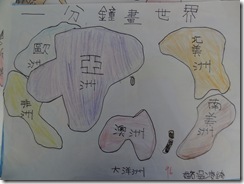 一分鐘畫世界
歐洲
亞洲
北美洲
非洲
澳洲
南美洲
大洋洲